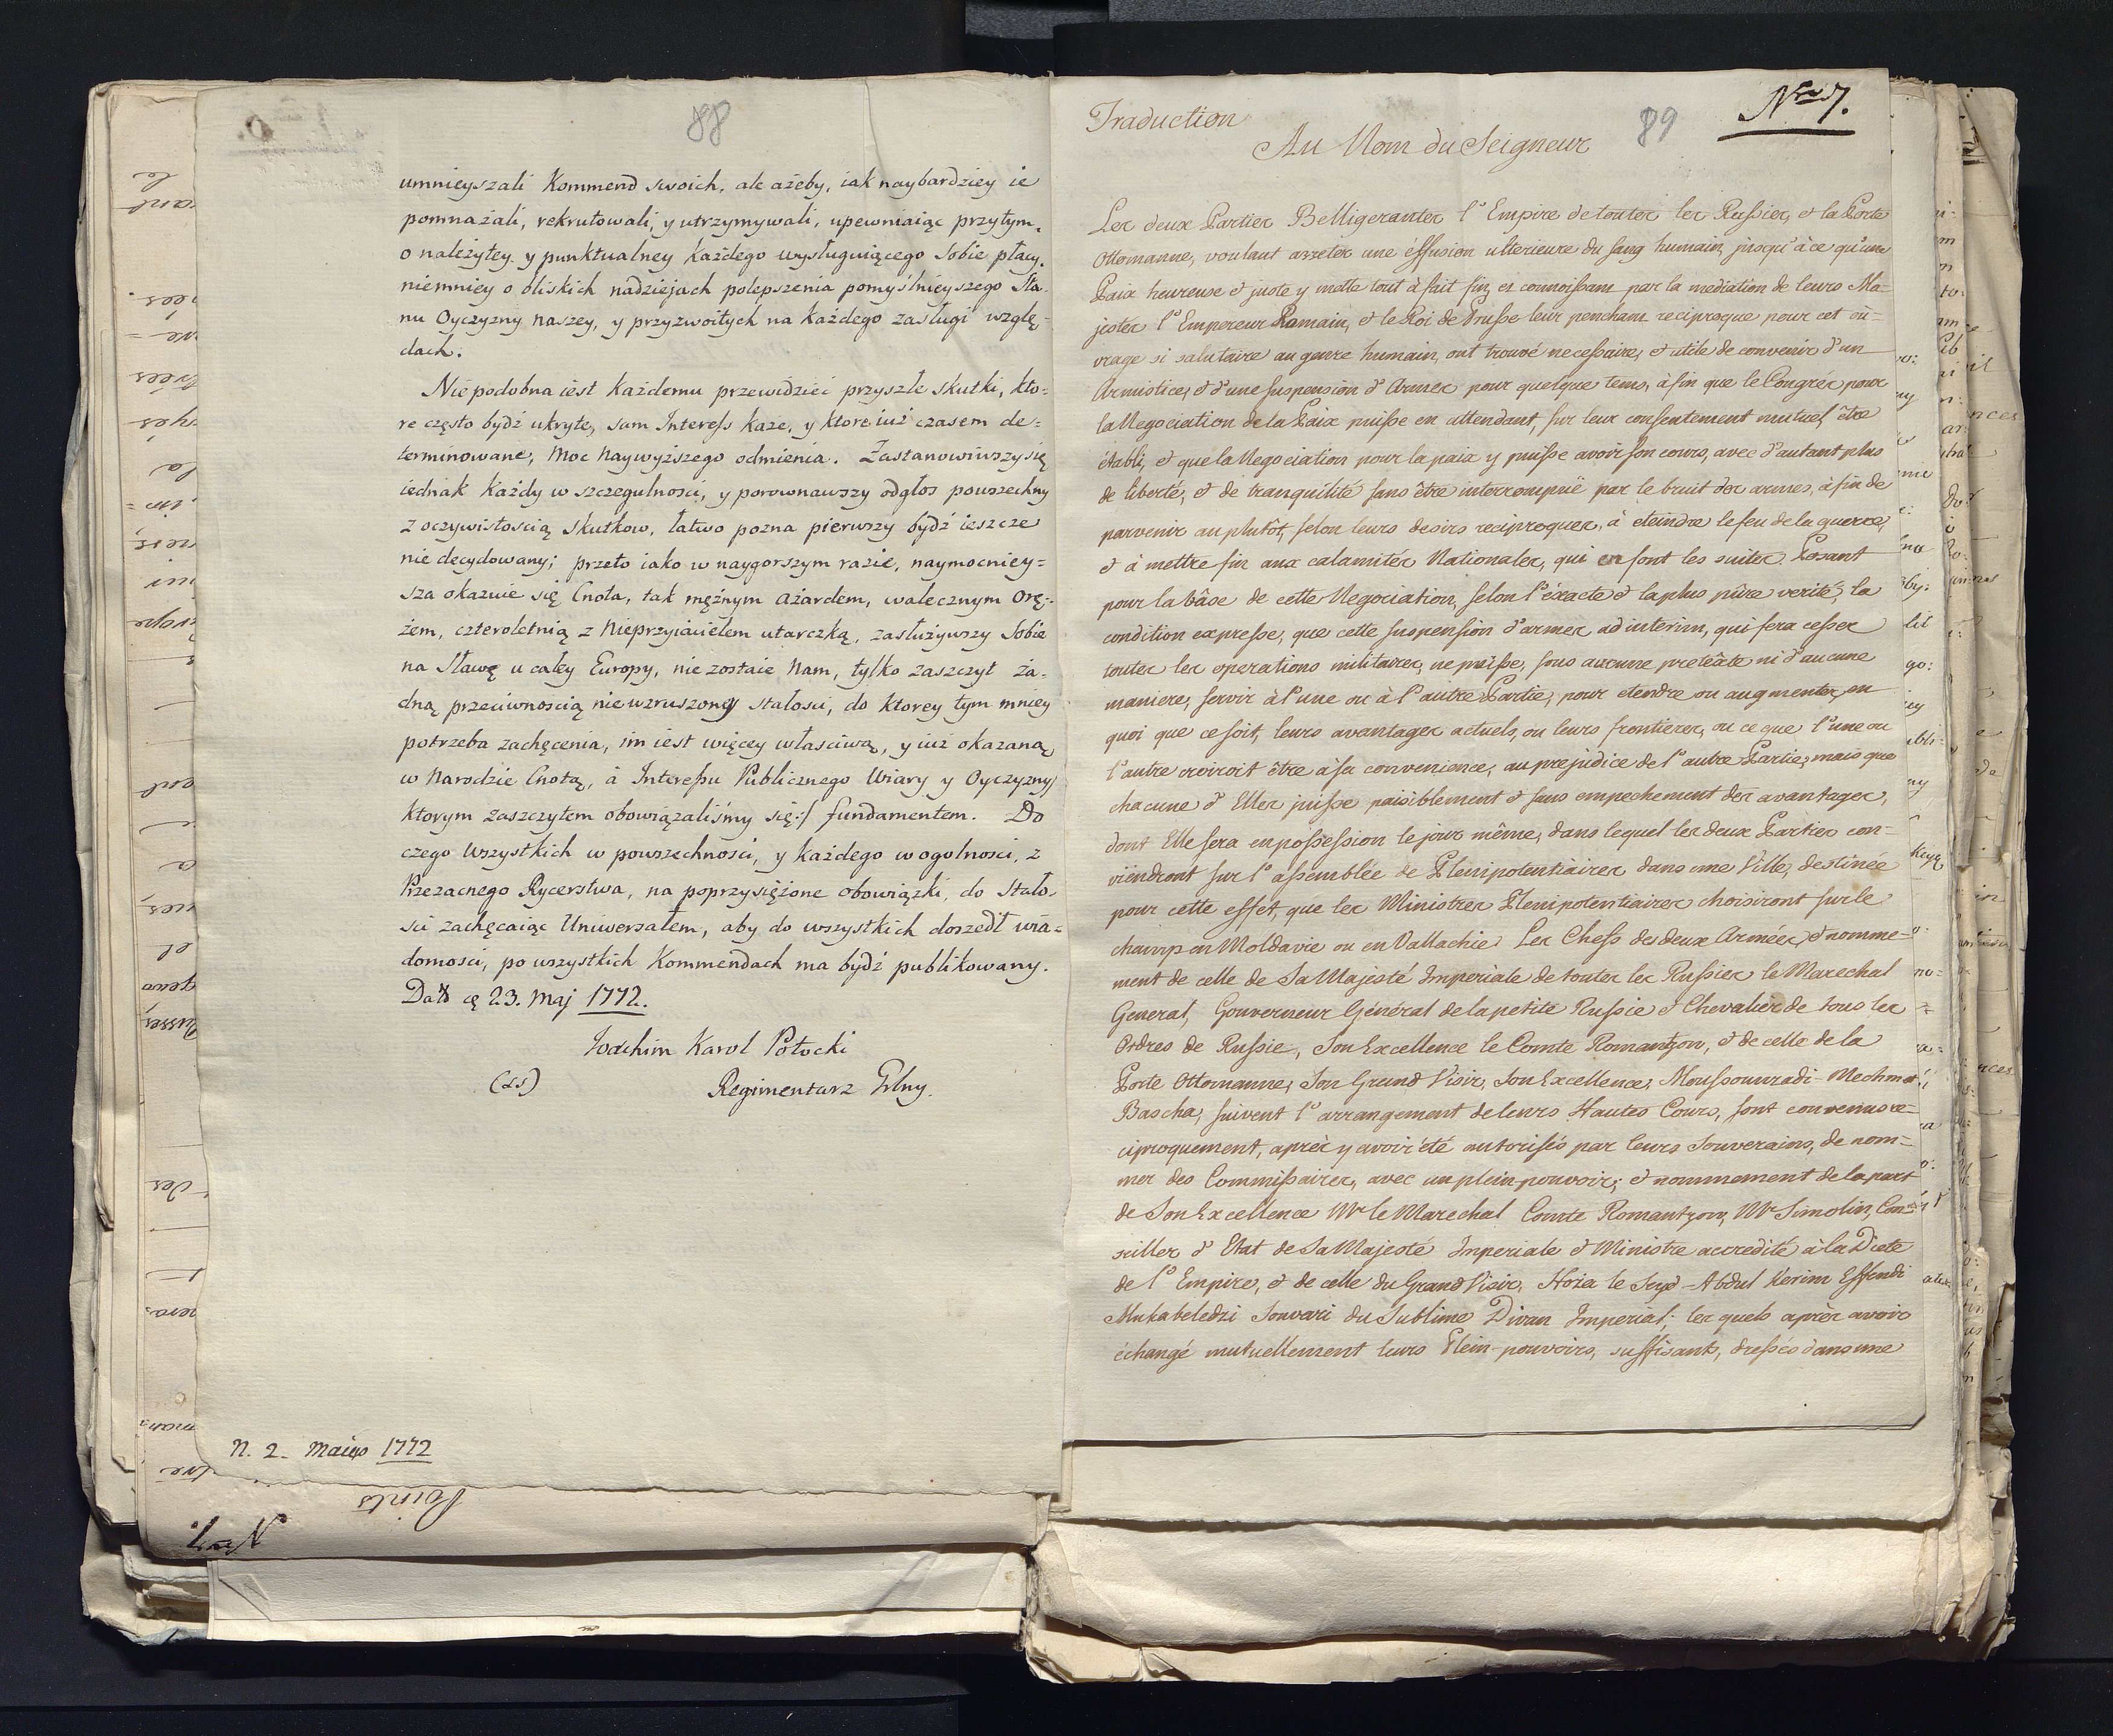 88
umnieyszali Kommend swoich, ale ażeby, iak naybardziey ie
pomnażali, rekrutowali, y utrzymywali, upewniaiąc przytym,
o należytey y punktualney każdego wysługuiącego Sobie płacy,
niemniey o bliskich nadziejach polepszenia pomyślnieyszego Sta-
nu Oyczyzny naszey, y przyzwoitych na każdego zasługi wzglę-
dach.
Niepodobna iest każdemu przewidzieć przyszłe skutki, kto=
re często bydź ukryte, sam Interess każe, y ktore iuż czasem de=
terminowane, moc Naywyższego odmienia. Zastanowiwszy się
iednak każdy w szczegulnosci, y porownawszy odgłos powszechny
z oczywistoscią skutkow, łatwo pozna pierwszy bydź ieszcze
nie decydowany; przeto iako w naygorszym razie, naymocniey=
sza okazuie się Cnota, tak mężnym ażardem, walecznym Orę-
żem, czteroletnią z Nieprzyiacielem utarczką, zasłużywszy Sobie
na Sławę u całey Europy, nie zostaie Nam, tylko zaszczyt ża-
dną przeciwnoscią niewzruszoney stałosci, do ktorey tym mniey
potrzeba zachęcenia, im iest więcey właściwą, y iuż okazaną
w Narodzie Cnotą, à Interessu Publicznego Wiary y Oyczyzny/
ktorym zaszczytem obowiązaliśmy się:/ fundamentem. Do
czego wszystkich w powszechności, y każdego w ogolnosci, z
Przezacnego Rycerstwa, na poprzysiężone obowiązki, do Stało-
sci zachęcaiąc Uniwersałem, aby do wszystkich doszedł wia=
domosci, po wszystkich Kommendach ma bydź publikowany.
23. Maj 1772.
Ioachim Karol Potocki
(LS) Regimentarz
N. 2. 1772
Points
89
Nro 7.
Traduction
Au Nom du Seigneur
Les deux Parties Belligerantes l'Empire de toutes les Russies, et la Porte
Ottomanne, voulant arreter une effusion ulterieure du sang humain, jusqu'à ce qu'une
Paix heureuse et juste y mette tout à fait fin, et connoissant par la mediation de leurs Ma-
jestés l'Empereur Romain, et le Roi de Prusse leur penchant reciproque pour cet oü-
vrage si salutaire au genre humain, ont trouvé necessaire, et utile de convenir d'un
Armistice, et d'une suspension d'Armes pour quelque tems, à fin que le Congrés pour
la Negociation de la Paix puisse en attendant, sur leur consentement mutuel, être
établi, et que la Negociation pour la paix y puisse avoir son cours, avec d'autant plus
de liberté, et de tranquilité sans être interrompüe par le bruit des armes, à fin de
parvenir au plutôt, selon leurs desirs reciproques, à eteindre le feu de la guerre,
et à mettre fin aux calamités Nationales, qui en font les suites. Posant
pour la bâse de cette Negociation, selon l'éxacte et la plus pûre verité, la
condition expresse, que cette suspension d'armes ad interim, qui fera cesser
toutes les operations militaires, ne puisse, sous aucune pretêxte ni d'aucune
maniere, servir à l'une ou à l'autre Partie, pour etendre ou augmenter, en
quoi que ce soit, leurs avantages actuels, ou leurs frontieres, ou ce que l'une ou
l'autre croiroit être à sa convenience, au prejudice de l'autre Partie, mais que
chacune d'Elles juisse paisiblement et sans empechement des avantages,
dont Elle sera en possession le jour même, dans lequel les deux Parties con-
viendront sur l'assemblée de Plenipotentiaires dans une Ville, destinée
pour cette effet, que les Ministres Plenipotentiaires choisiront sur le
champ en Moldavie ou en Vallachie. Les Chefs des deux Armées, et nomme-
ment de celle de Sa Majesté Imperiale de toutes les Russies le Marechal
General, Gouverneur Général de la petite Russie et Chevalier de tous les
Ordres de Russie, Son Excellence le Comte Romantzow, et de celle de la
Porte Ottomanne, Son Grand Visir, Son Excellence, Moussounzadi-Mechmet
Bascha, suivent l'arrangement de leurs Hautes Cours, sont convenus re-
ciproquement, après y avoir été autorisés par leurs Souverains, de nom-
mer des Commissaires, avec un plein pouvoir; et nommement de la part
de Son Excellence Mr le Marechal Comte Romantzow, Mr Simolin, Con-
seiller d'Etat de Sa Majesté Imperiale et Ministre accredité à la Diete
de l'Empire, et de celle du Grand Visir, Hoza le Seyd-Abdul Kerim Effendi
Mukabeledzi Souvari du Sublime Divan Imperial; les quels après avoir
échangé mutuellement leurs Plein-pouvoirs, suffisants, dressés dans une